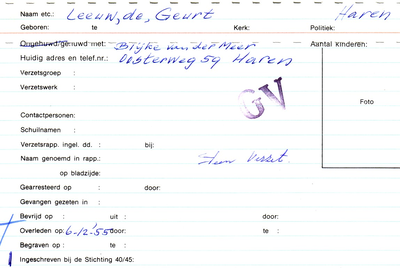 Naam etc.: Leeuw, de, Geurt Haren
Geboren: te Kerk: Politiek:
Ongehuwd/gehuwd met: Blijke van der Meer Aantal kinderen:
Huidig adres en telef.nr.: Oosterweg 59 Haren
Verzetsgroep :
Verzetswerk :
GV
Foto
Contactpersonen:
Schuilnamen :
Verzetsrapp. ingel. dd. : bij:
Naam genoemd in rapp.:
op bladzijde:
Gearresteerd op : door:
Gevangen gezeten in :
Bevrijd op : uit : door:
Overleden op: 6-12-'55 door: te :
Begraven op : te :
Ingeschreven bij de Stichting 40/45: